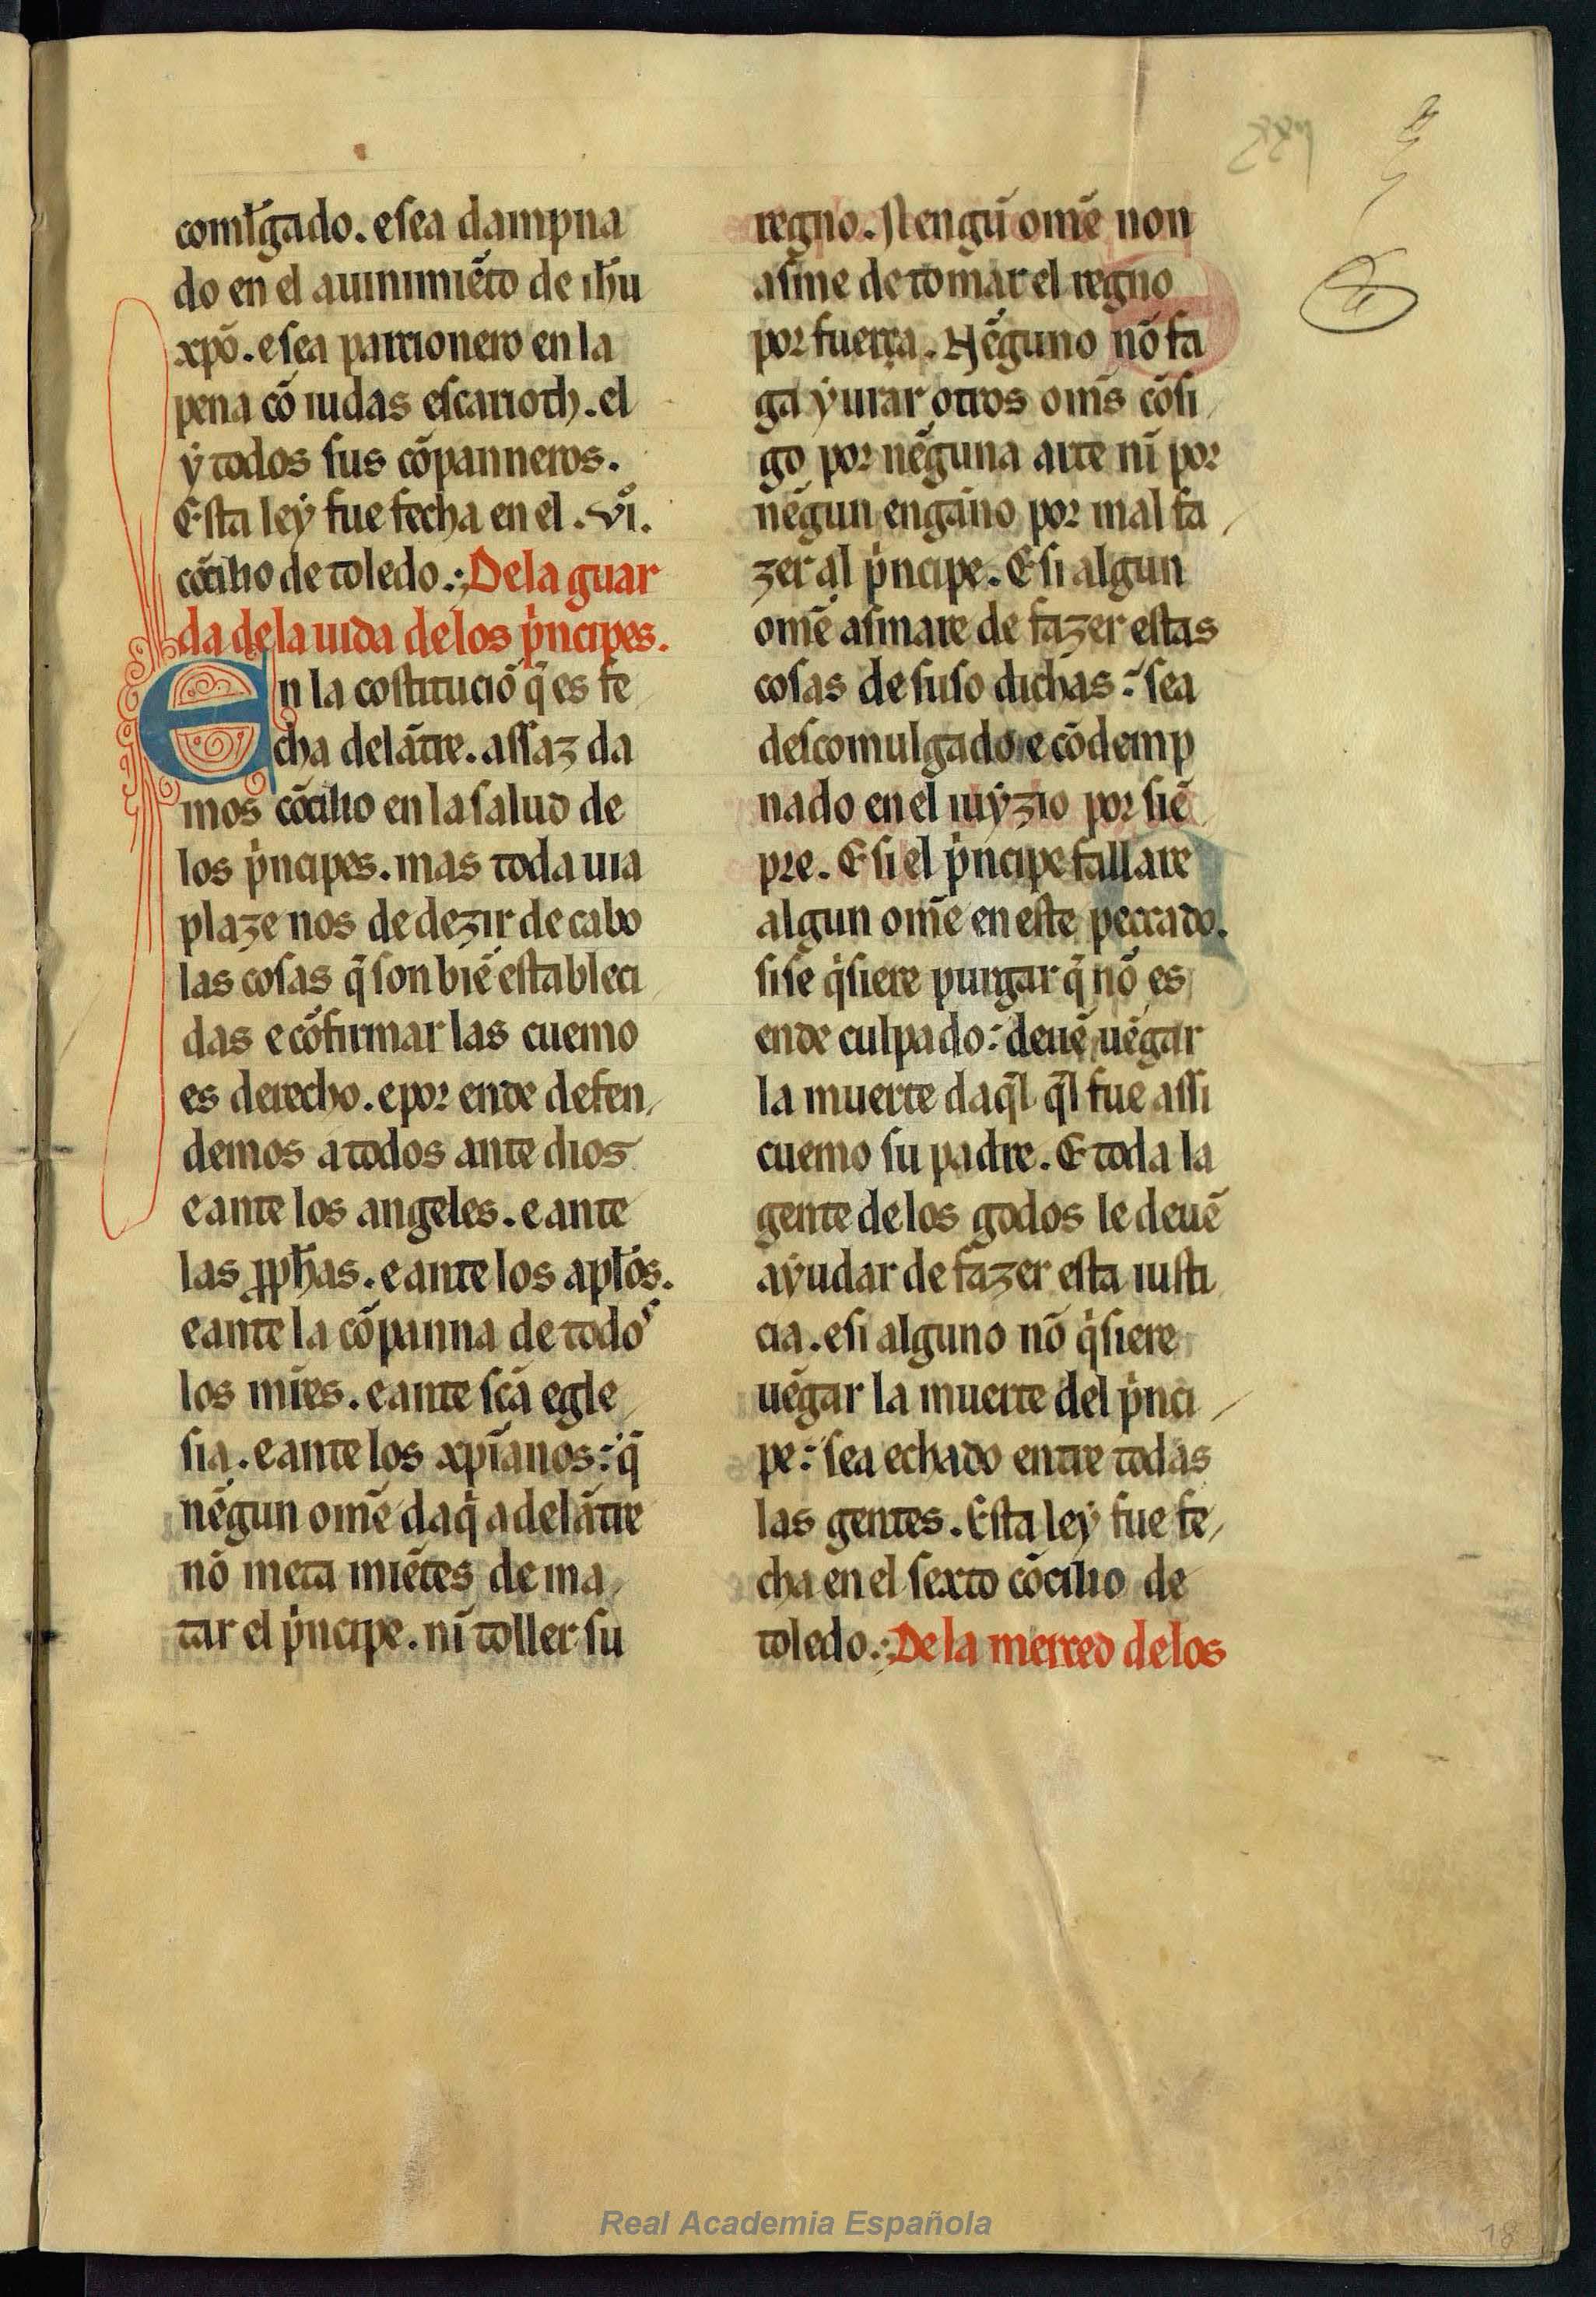 coml̃gado. e sea dampna
do en el auinimiẽto de ih̃u
xpõ. e sea parcionero en la
pena cõ iudas escarioth. el
ẏ todos sus cõpanneros.
Esta leẏ fue fecha en el .vıͦ.
cõcilio de toledo.:; De la guar
da de la uida de los pͥncipes.
En la costituciõ q̃ es fe
cha delãtre. assaz da
mos cõcilio en la salud de
los pͥncipes. mas toda uia
plaze nos de dezir de cabo
las cosas q̃ son biẽ estableci
das e cõfirmar las cuemo
es derecho. e por ende defen
demos a todos ante dios
e ante los angeles. e ante
las ꝓph̃as. e ante los apl̃os.
e ante la cõpanna de todos
los mr̃es. e ante sc̃a egle
sia. e ante los xp̃ianos: q̃
nẽgun omẽ daqͥ adelãtre
nõ meta miẽtes de ma
tar el pͥncipe. nĩ toller su
regno. Nengũ omẽ non
asme de tomar el regno
por fuerça. Nẽguno nõ fa
ga ẏurar otros om̃s cõsi
go por nẽguna arte nĩ por
nẽgun engãno por mal fa
zer al pͥncipe. E si algun
omẽ asmare de fazer estas
cosas de suso dichas: sea
descomulgado e cõdemp
nado en el iuẏzio por siẽ
pre. E si el pͥncipe fallare
algun omẽ en este peccado.
si se qͥsiere purgar q̃ nõ es
ende culpado: deuẽ uẽgar
la muerte daq̃l q̃l fue assi
cuemo su padre. E toda la
gente de los godos le deuẽ
aẏudar de fazer esta iusti
cia. e si alguno nõ qͥsiere
uẽgar la muerte del pͥnci
pe: sea echado entre todas
las gentes. Esta leẏ fue fe
cha en el sexto cõcilio de
toledo.:; De la merced de los
Real Academia Española
18